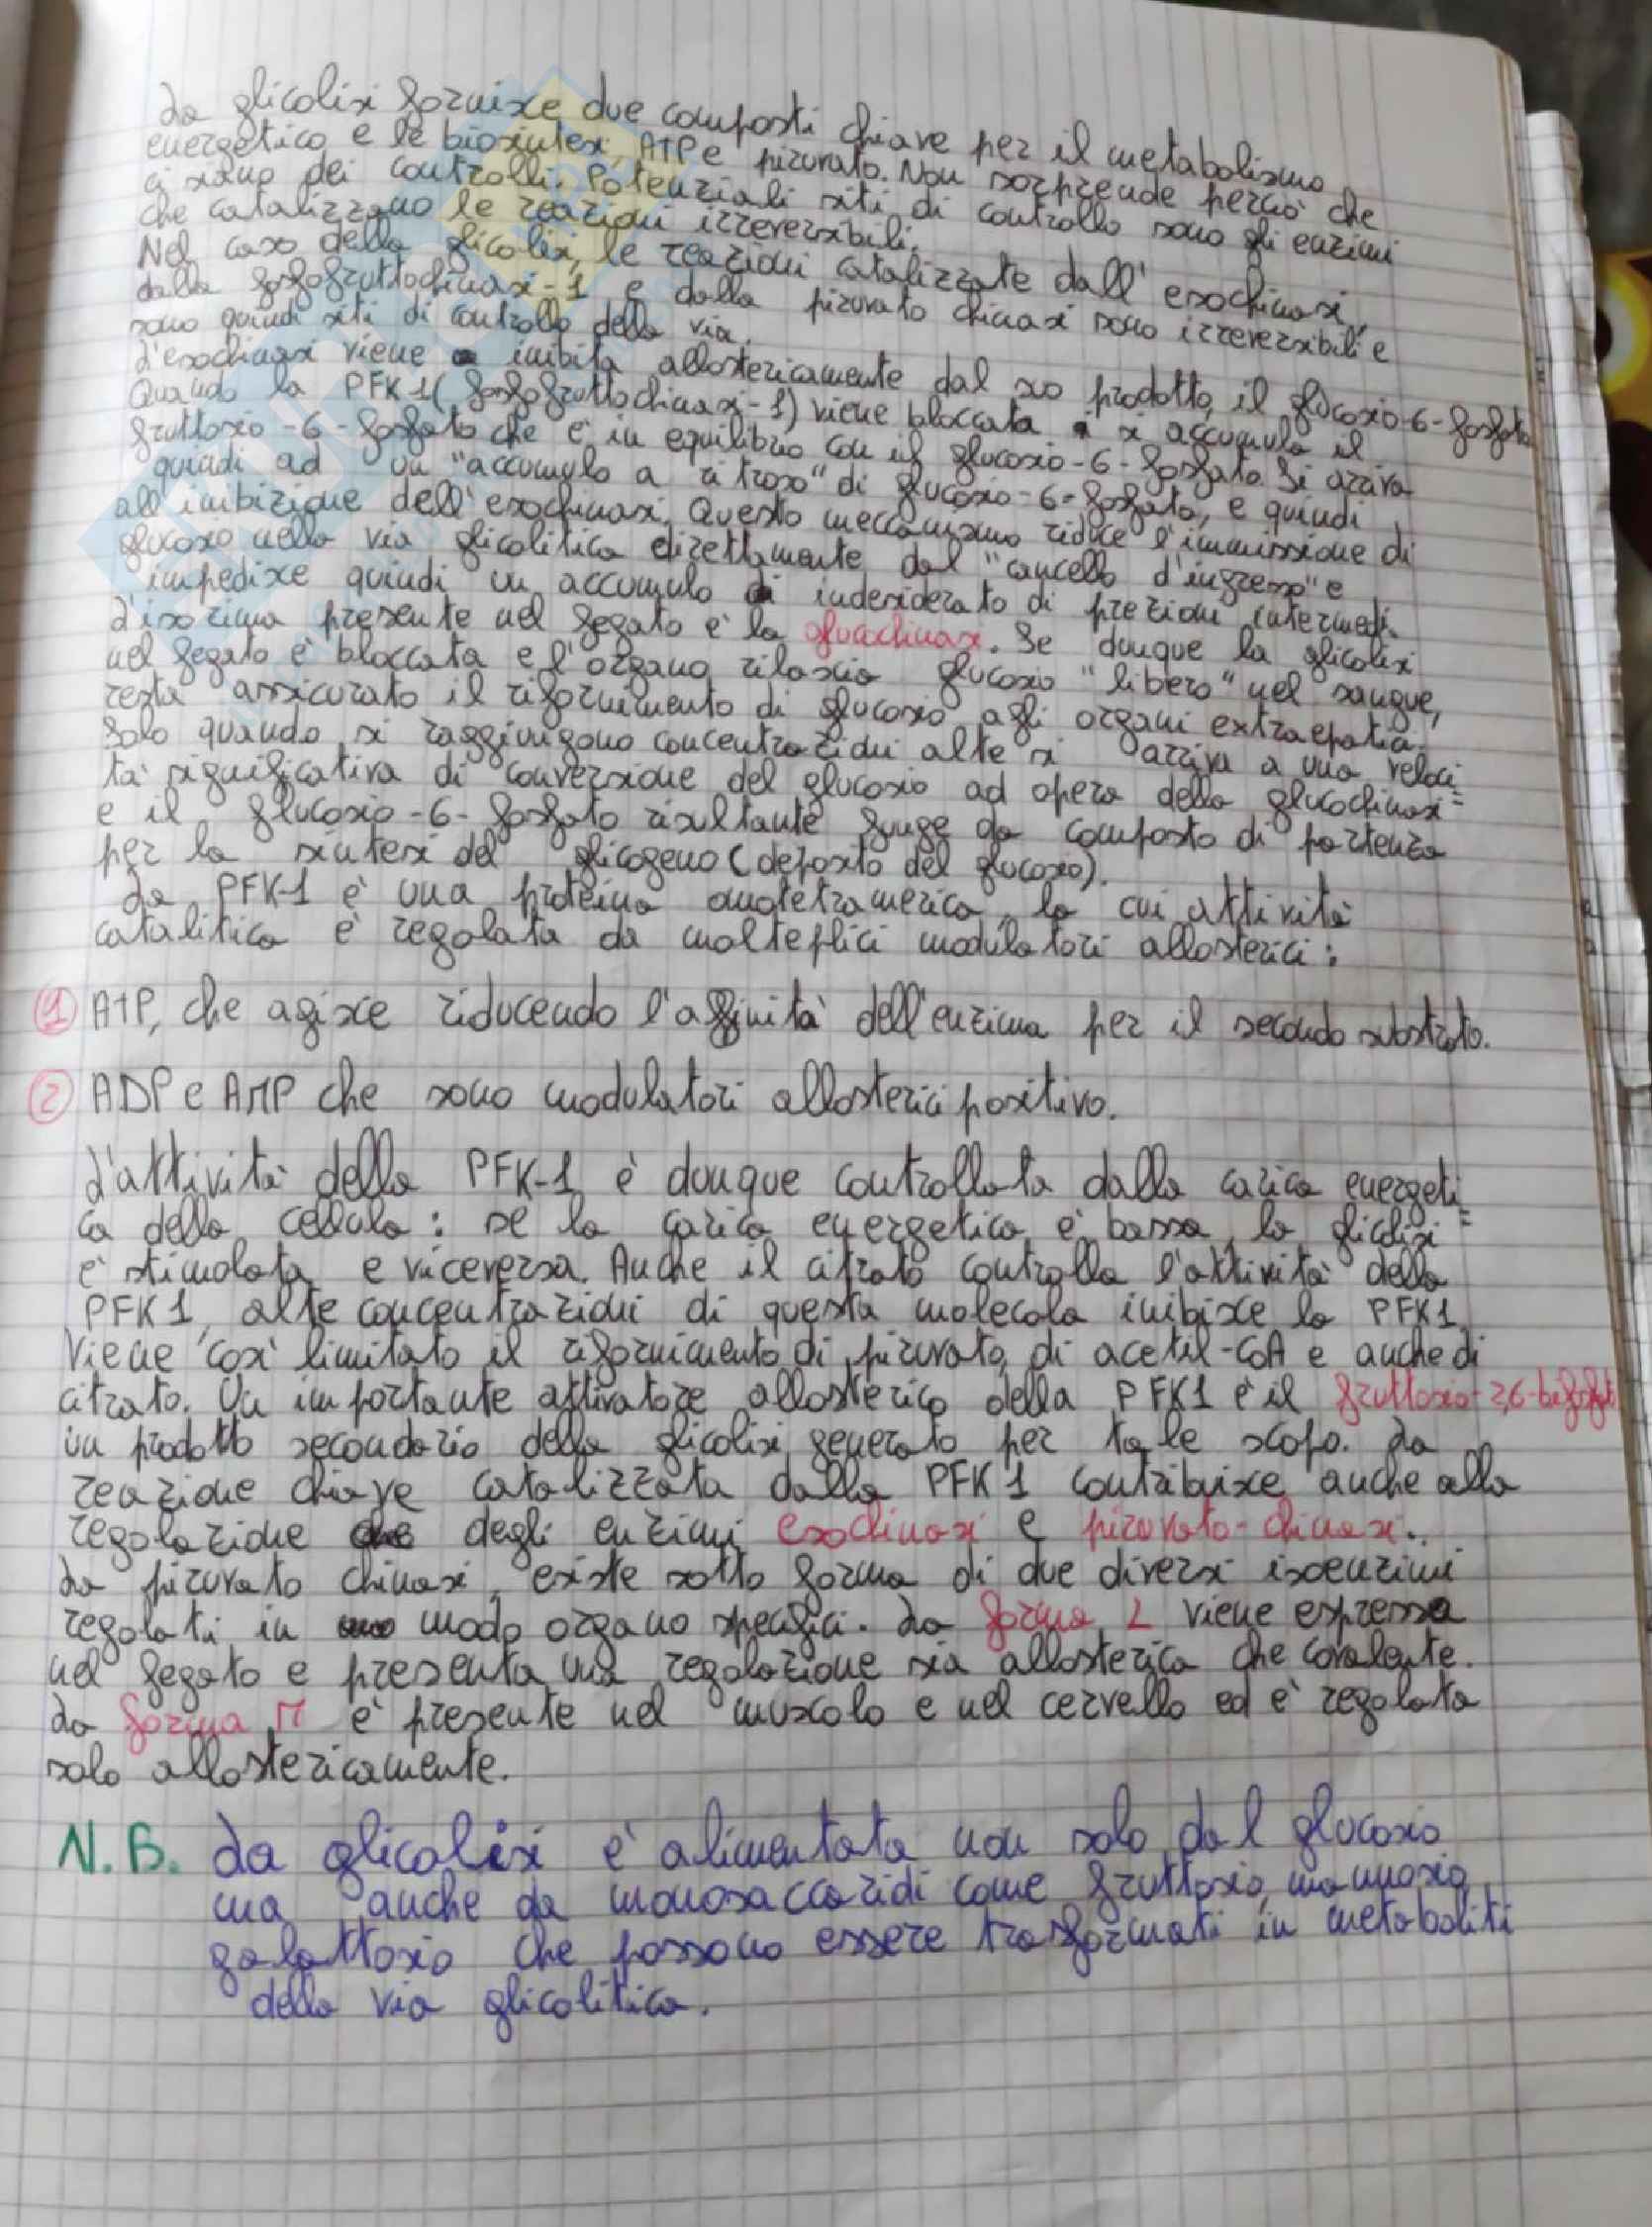 La glicolisi fornisce due composti chiave per il metabolismo
energetico e le biosintesi, ATP e piruvato. Non sorprende perciò che
ci siano dei controlli. Potenziali siti di controllo sono gli enzimi
che catalizzano le reazioni irreversibili.
Nel caso della glicolisi, le reazioni catalizzate dall'esochinasi,
dalla fosfofruttochinasi-1 e dalla piruvato chinasi sono irreversibili e
sono quindi siti di controllo della via.
L'esochinasi viene inibita allostericamente dal suo prodotto, il glucosio-6-fosfato
Quando la PFK1 (fosfofruttochinasi-1) viene bloccata si accumula il
fruttosio-6-fosfato che è in equilibrio con il glucosio-6-fosfato. Si arriva
quindi ad un "accumulo a ritroso" di glucosio-6-fosfato, e quindi
all'inibizione dell'esochinasi. Questo meccanismo riduce l'immissione di
glucosio nella via glicolitica direttamente dal "cancello d'ingresso" e
impedisce quindi un accumulo di indesiderato di preziosi intermedi.
L'isozima presente nel fegato è la glucochinasi. Se dunque la glicolisi
nel fegato è bloccata e l'organo rilascia glucosio "libero" nel sangue,
resta assicurato il rifornimento di glucosio agli organi extraepatici.
Solo quando si raggiungono concentrazioni alte si arriva a una veloci=
tà significativa di conversione del glucosio ad opera della glucochinasi
e il glucosio-6-fosfato risultante funge da composto di partenza
per la sintesi del glicogeno (deposito del glucosio).
La PFK-1 è una proteina omotetramerica, la cui attività
catalitica è regolata da molteplici modulatori allosterici:
1 ATP, che agisce riducendo l'affinità dell'enzima per il secondo substrato.
2 ADP e AMP che sono modulatori allosterici positivo.
L'attività della PFK-1 è dunque controllata dalla carica energeti=
ca della cellula: se la carica energetica è bassa, la glicolisi
è stimolata e viceversa. Anche il citrato controlla l'attività della
PFK1, alte concentrazioni di questa molecola inibisce la PFK1
Viene così limitato il rifornimento di piruvato, di acetil-CoA e anche di
citrato. Un importante attivatore allosterico della PFK1 è il fruttosio-2,6-bifosfato
un prodotto secondario della glicolisi generato per tale scopo. La
reazione chiave catalizzata dalla PFK1 contribuisce anche alla
regolazione degli enzimi esochinasi e piruvato-chinasi.
La piruvato chinasi, esiste sotto forma di due diversi isoenzimi
regolati in modo organo specifici. La forma L viene espressa
nel fegato e presenta una regolazione sia allosterica che covalente.
La forma M è presente nel muscolo e nel cervello ed è regolata
solo allostericamente.
N.B. La glicolisi è alimentata non solo dal glucosio
ma anche da monosaccaridi come fruttosio, mannosio,
galattosio che possono essere trasformati in metaboliti
della via glicolitica.